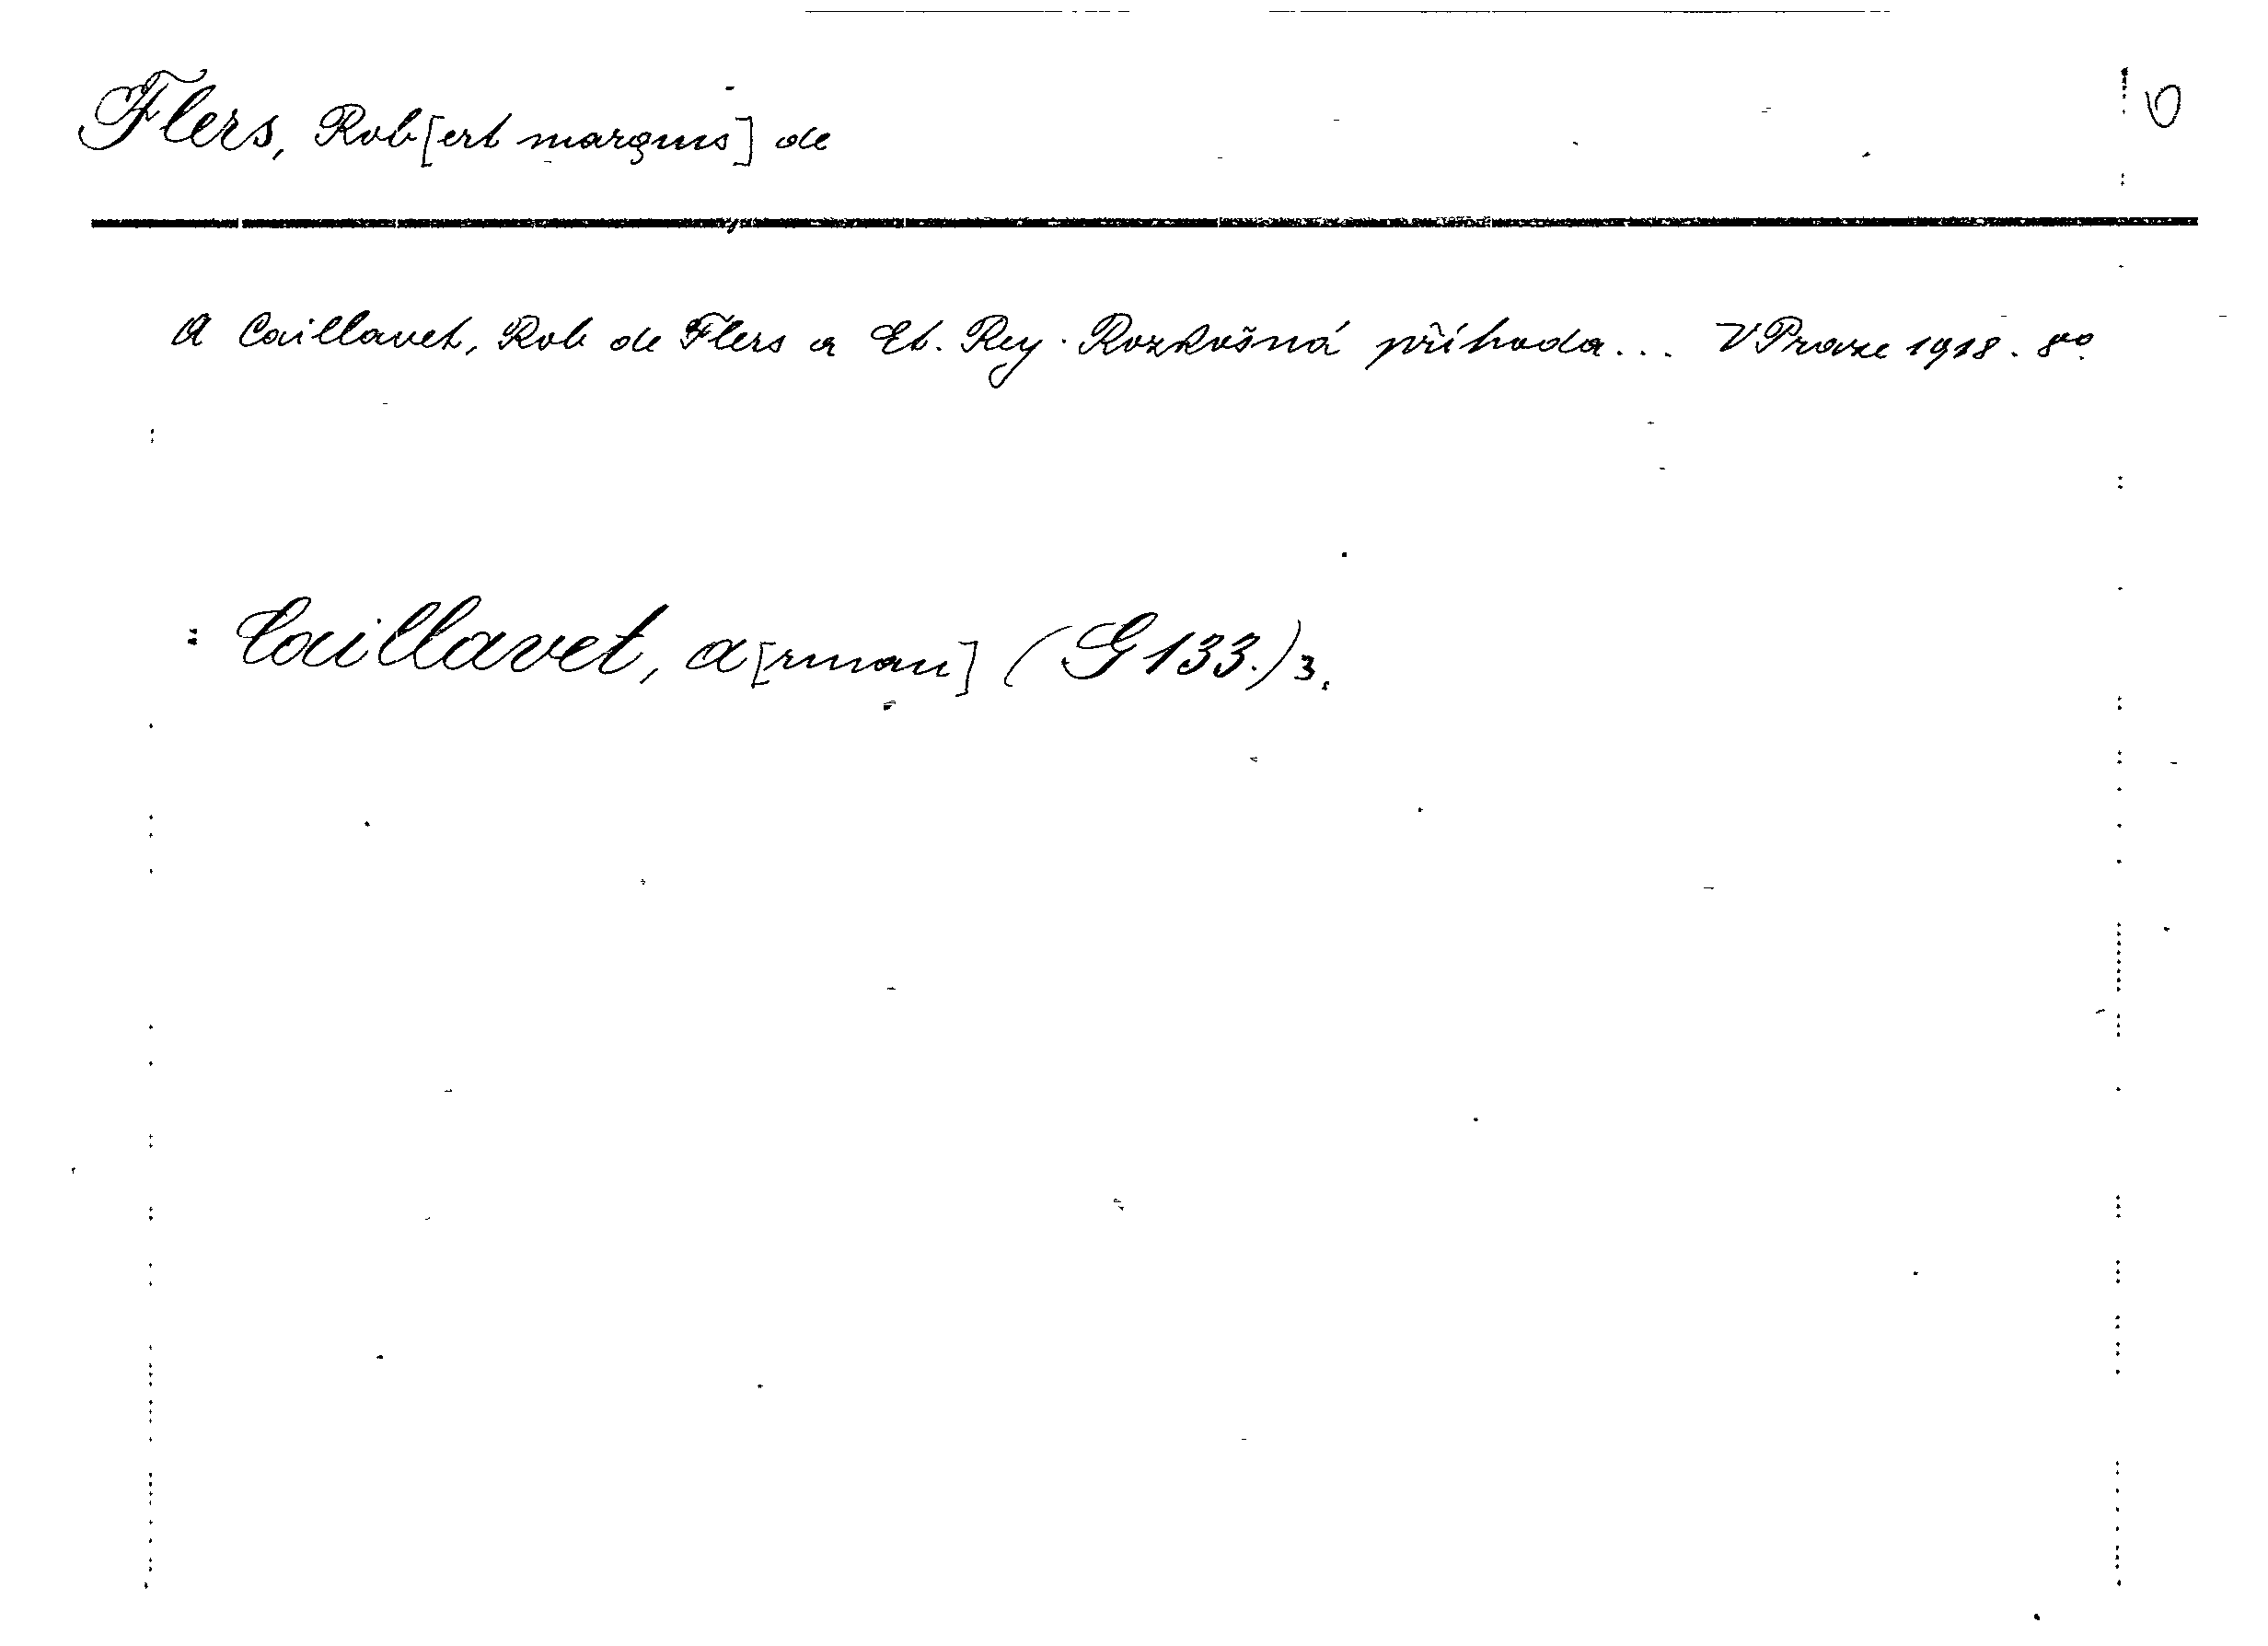 Flers, Rob[ert marquis] de
A Caillavet, Rob de Flers a Et. Rey. Rozkošná příhoda... V Praze 1918. 8vo.
: Caillavet, A[rman] (G 133.) 3.